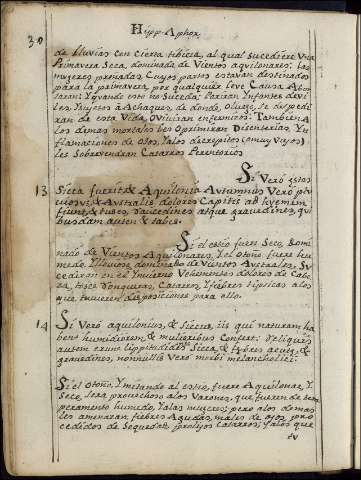 30
Hipp. Aphor.
de lluvias con cierta tibieza, al qual sucediere Una
Primavera Seca, dominada de Vientos aquilonares: las
mugeres preñadas, Cuyos partos estavan destinados
para la primavera, por qualquiera leve Causa Abor
taran: Y quando esto no suceda, Pariran Ynfantes devi
les Y sujetos à Achaques, de donde, O luego, se despedi
ran de esta Vida, O Viviran enfermizos. Tambien A
los demas mortales les Oprimiran Disenterias, Yn
flamaciones de Ojos, Y alos decrepitos (muy Viejos)
les Sobrevendran Catarros Perentorios
Si Verò Æstas
13 Sicca fuerit & Aquilonia Autumnus Verò plu
viosus, & Australis, dolores Capitis ad hyemem
fiunt, & tusses, raucedines atque gravedines, qui
busdam autem & tabes.
Si el estio fuere Seco, Domi
nado de Vientos Aquilonares, Y el Otoño fuere hu
medo, Y lluvioso dominado de Vientos Australes: Su
cediran en el Ynvierno Vehementes dolores de Cabe
za, tosse, ronqueras, Catarros, Y fiebres tipsicas alos
que tuvieren disposiciones para ello.
14 Si Verò aquilonius, & Siccus, iis qui naturam ha
bent humidiorem, & mulieribus Confert: Reliquis
autem erunt lippitudines Siccæ, & febres acutæ, &
gravedines, nonnullis Verò morbi melancholici.
Si el Otoño, Ymitando al estio, fuere Aquilonar, Y
Seco, sera provechoso alos Varones, que fueren de tem
peramento humedo, Y alas mugeres; pero alos demas
les amenazan fiebres Agudas, males de ojos, pro
cedidos de Sequedad, prolijos Catarros; Y alos que